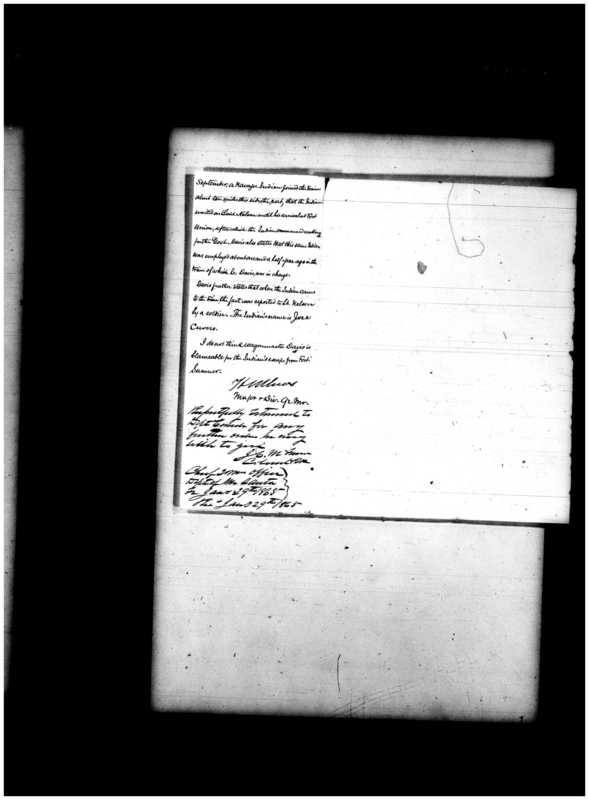 September, a Navajo Indian joined the train
about ten miles this side the post, that the Indian
waited on Lieut Nelson until his arrival at Fort
Union, after which the Indian commenced working
for the Govt. Davis also states that this same Indian
was employed about one and a half year ago in the
train of which he, Davis, was in charge.
Davis further states that when the Indian came
to the train the fact was reported to Lt. Nelson
by a soldier. The Indian's name is Jose
I do not think wagonmaster Davis is
blameable for the Indian's escape from Fort
Sumner.
Major & Div. Qr. Mr.
Respectfully returned to
for any
further orders he may
wish to give
J. C. McFerran
Chief Qr Mr Office
Dept of
Jany 29th 1865
Jany 29th 1865